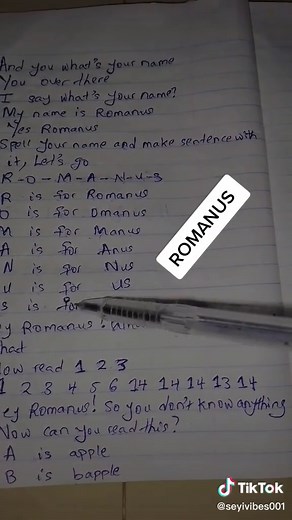 And you what's your name
You over there
I say what's your name?
My name is Romanus
Yes Romanus
Spell your name and make sentence with
it, Let's go
R-O-M-A-N-U-S
R is for Romanus
O is for Omanus
M is for Manus
A is for Anus
N is for Nus
U is for us
S is for
ROMANUS
Romanus!
hat
read 1 2 3
1 2 3 4 5 6 14 14 14 13 14
ey Romanus! So you don't know anything
Now can you read this?
A is apple
B is bapple
TikTok
@seyivibes001